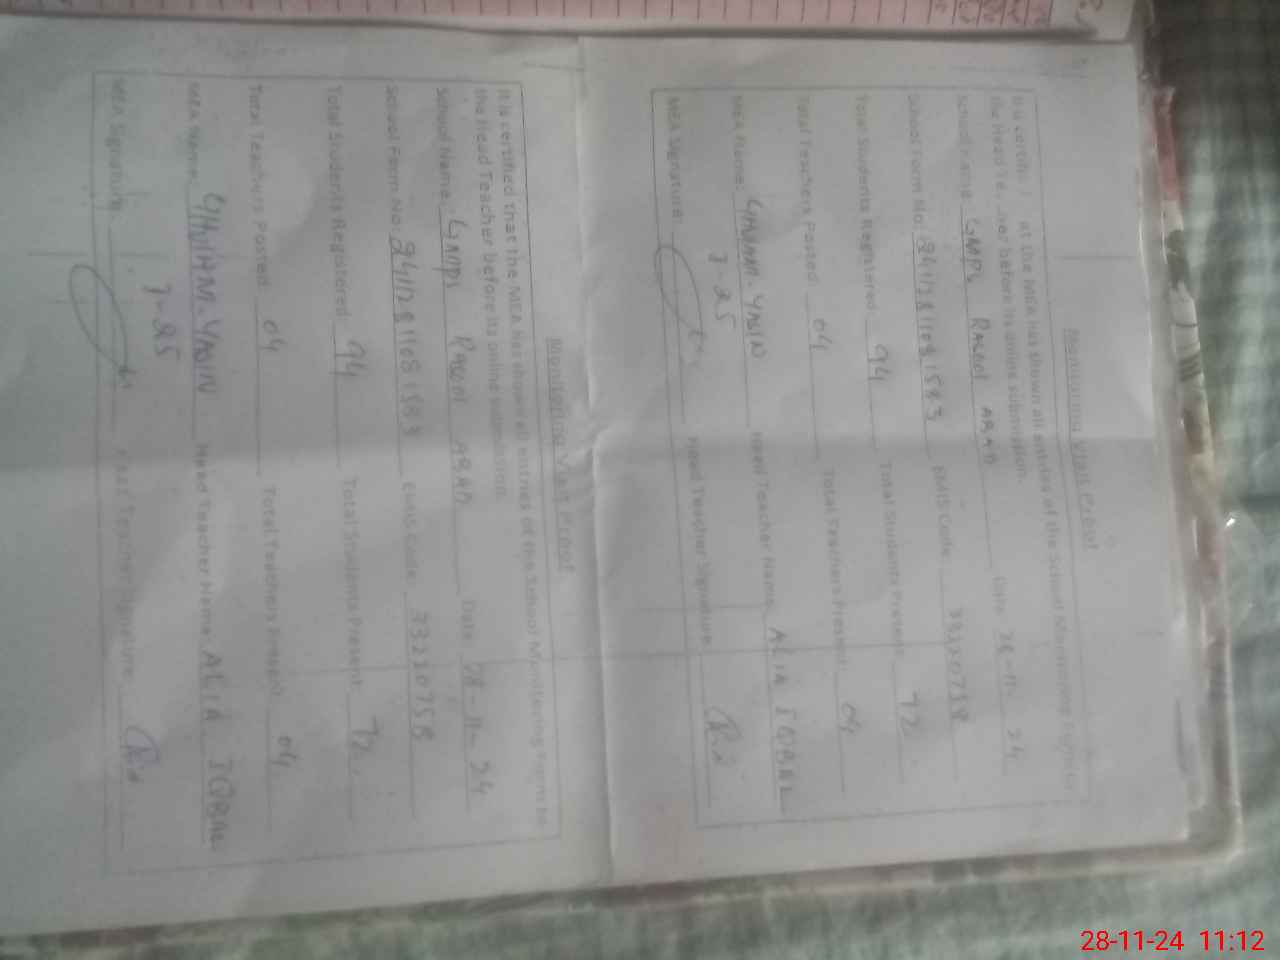 Monitoring Visit Proof
It is certi at the MEA has shown all entries of the School Monitoring
the Head Te her before its online submission.
School Name: GMPS Rasool ABAD Date 28-11-24
School Form No: 2411281108 1583 EMIS Code 33220758
Total Students Registered: 94 Total Students Present: 72
Total Teachers Posted: 04 Total Teachers Present: 04
MEA Name: YASIN Head Teacher Name ALIA IQBAL
7-25
MEA Signature: Head Teacher Signature
Monitoring Visit Proof
It is certified that the MEA has shown all entries of the School Monitoring Form to
the Head Teacher before its online submission.
School Name: GMPS Rasool ABAD Date 28-11-24
School Form No: 2411281108 1583 EMIS Code 33220758
Total Students Registered: 94 Total Students Present: 72
Total Teachers Posted: 04 Total Teachers Present: 04
MEA Name: YASIN Head Teacher Name ALIA IQBAL
7-25
MEA Signature: Head Teacher Signature
28-11-24 11:12